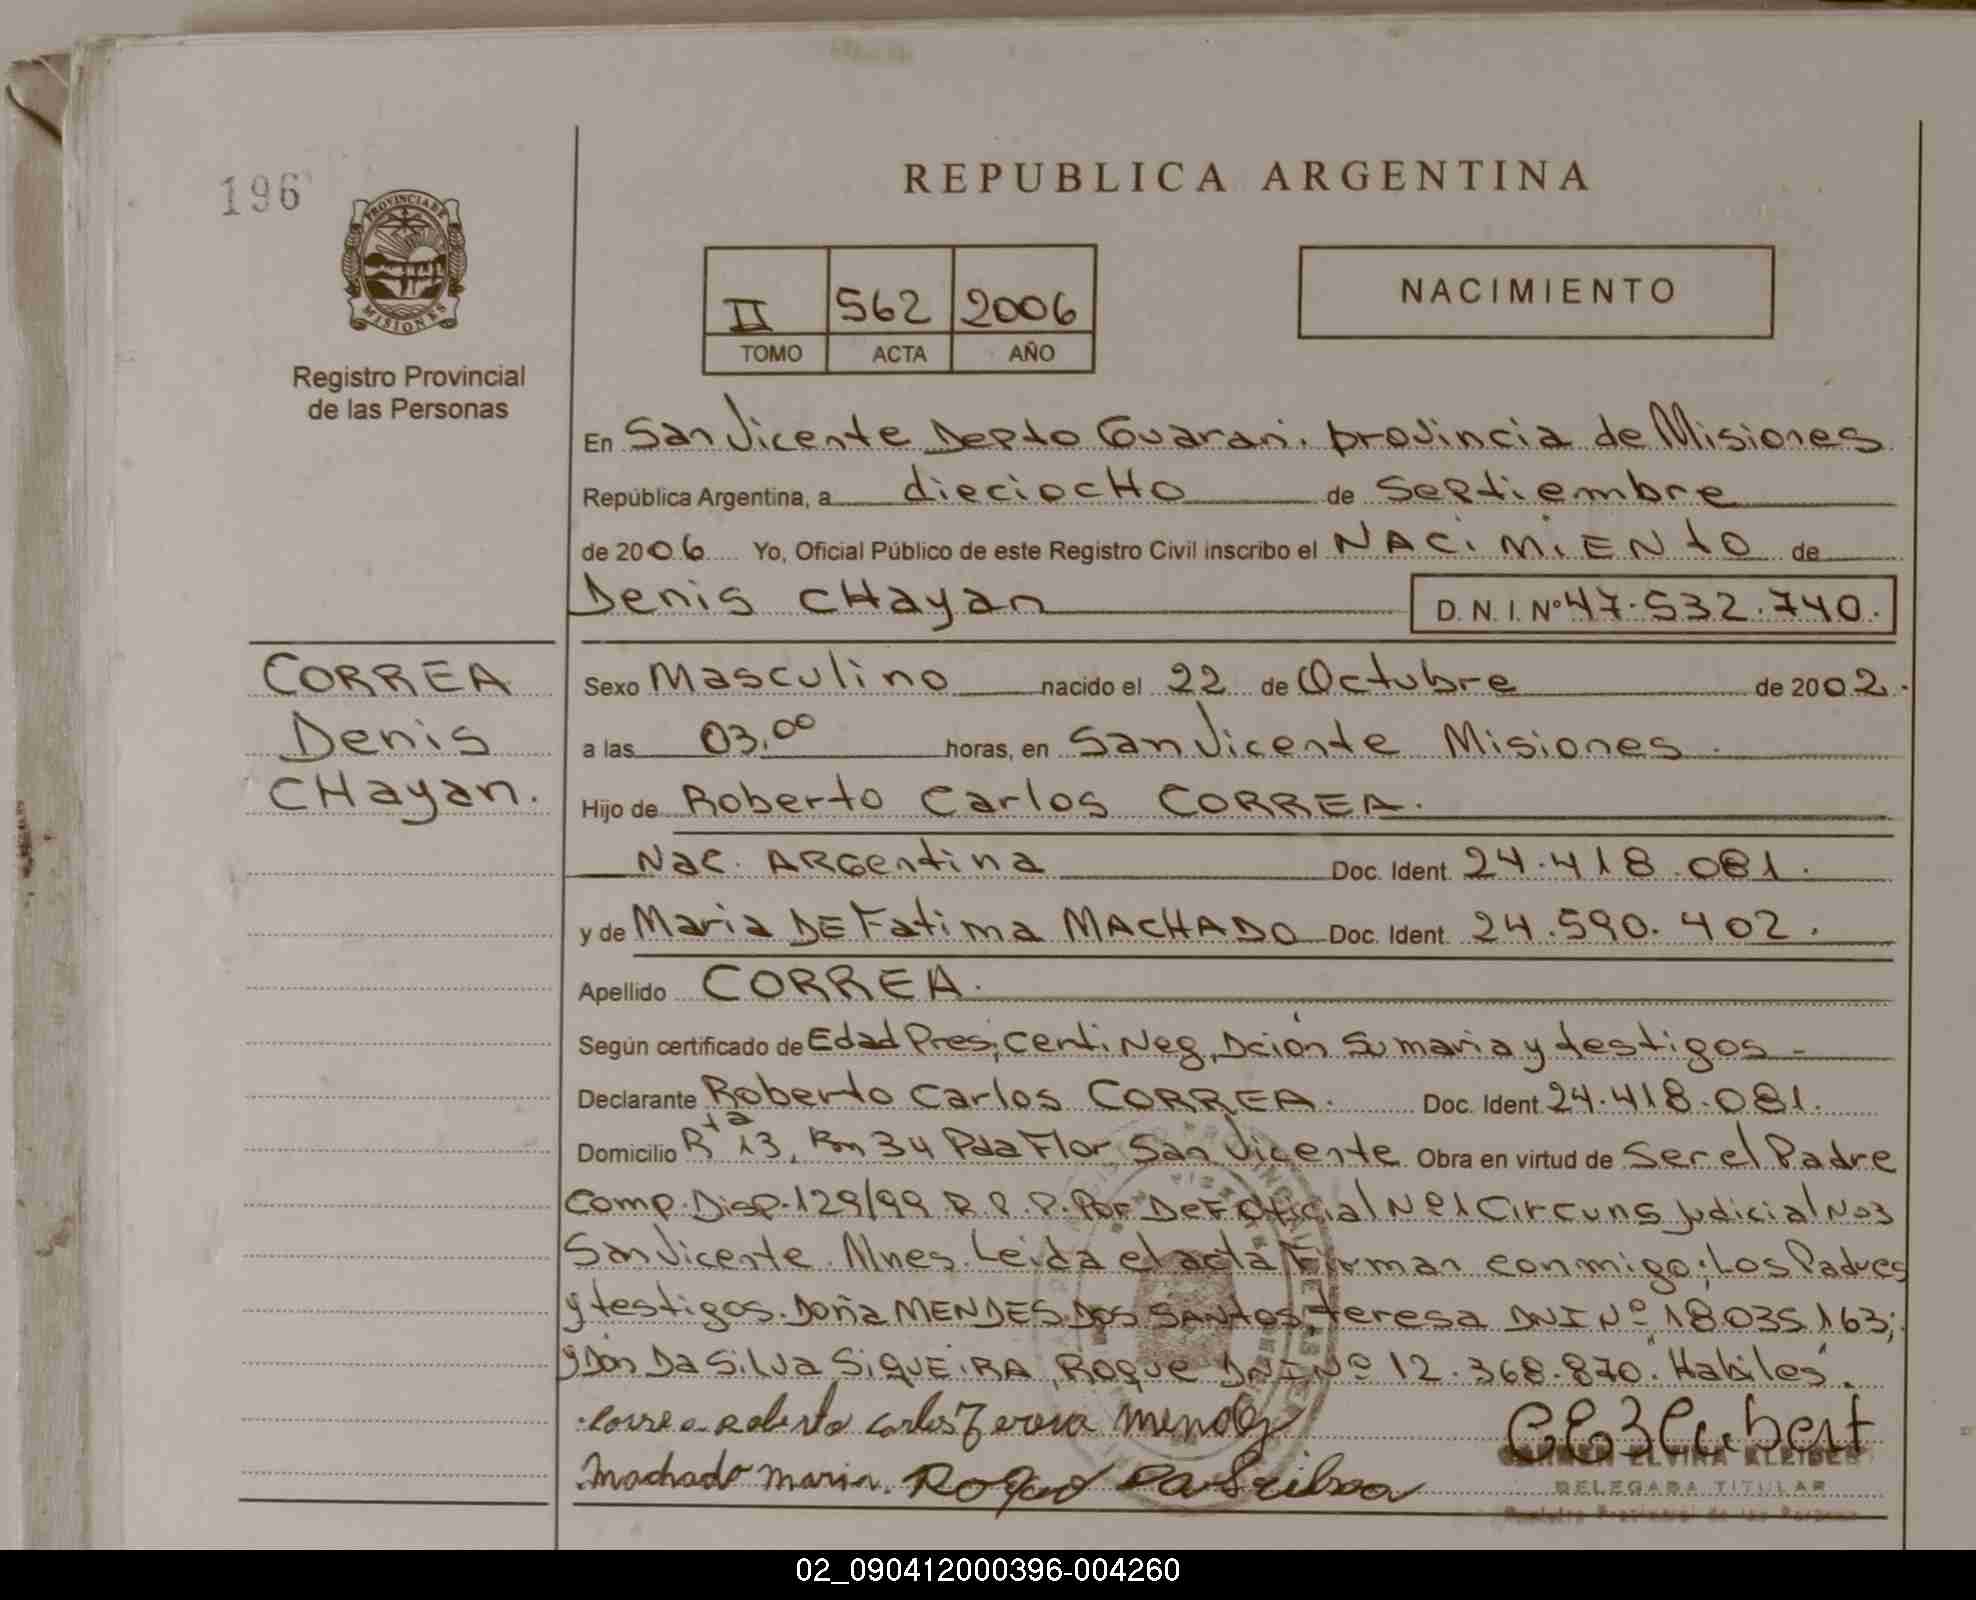 196
PROVINCIA DE
MISIONES
Registro Provincial
de las Personas
REPUBLICA ARGENTINA
II 562 2006
TOMO ACTA AÑO
NACIMIENTO
En San Vicente Depto Guarani. provincia de Misiones
República Argentina, a dieciocHo de Septiembre
de 2006 Yo, Oficial Público de este Registro Civil inscribo el NACiMiENtO de
Denis CHayan D. N. I. Nº 47.532.740.
CORREA
Denis
CHayan.
Sexo Masculino nacido el 22 de Octubre de 2002.
a las 03,00 horas, en San Vicente Misiones.
Hijo de Roberto Carlos CORREA.
Nac. ARGentina Doc. Ident. 24.418.081.
y de Maria DE Fatima MACHADO Doc. Ident. 24.590.402.
Apellido CORREA.
Según certificado de Edad Pres, certi Neg, Dción Sumaria y testigos -
Declarante Roberto Carlos CORREA. Doc. Ident. 24.418.081.
Domicilio Rta 13, Km 34 Pda Flor San Vicente Obra en virtud de Ser el Padre
Comp. Disp. 129/99 R.P.P. Por Def Oficial Nº1 Circuns Judicial Nº3
San Vicente. Mnes. Leida el acta Firman conmigo; Los Padres
y testigos. Doña MENDES DOS SANtOS, teresa DNI Nº 18.035.163;
y Don Da Silva SiQUEiRA, Roque DNI Nº 12.368.870. Habiles.
Correa Roberto Carlos Teresa Mendes
Machado Maria. Roque Da Silva
CARMEN ELVIRA KLEIBER
DELEGADA TITULAR
Registro Provincial de las Personas
02_090412000396-004260